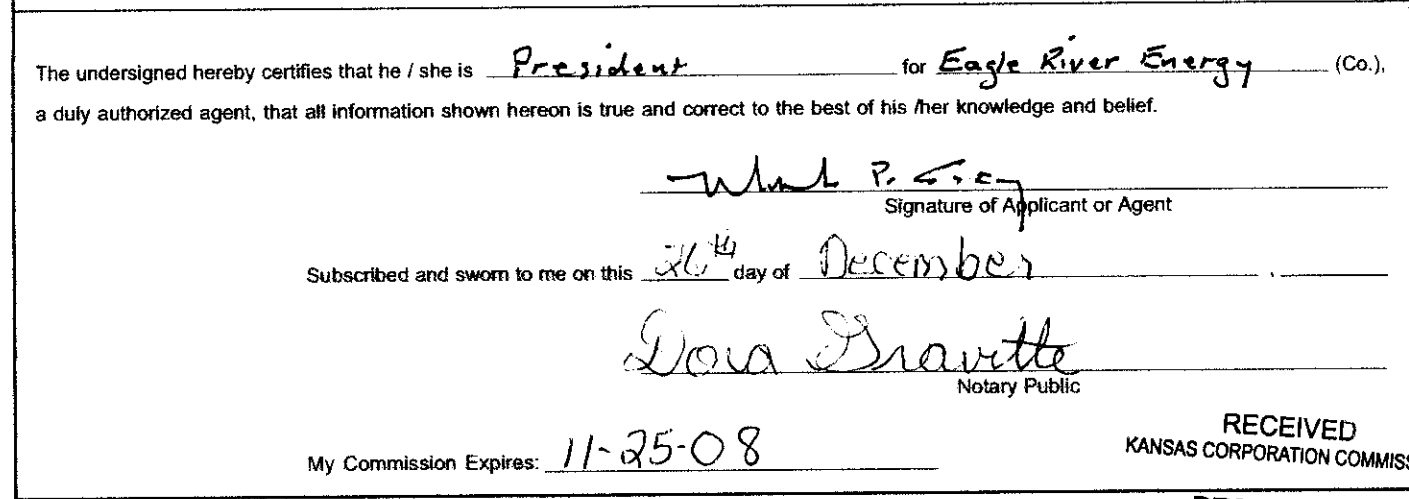 The undersigned hereby certifies that he / she is President for Eagle River Energy (Co.),
a duly authorized agent, that all information shown hereon is true and correct to the best of his /her knowledge and belief.
P.
Signature of Applicant or Agent
Subscribed and sworn to me on this 26th day of December , .
Dora Gravitte
Notary Public
My Commission Expires: 11-25-08
RECEIVED
KANSAS CORPORATION COMMISS